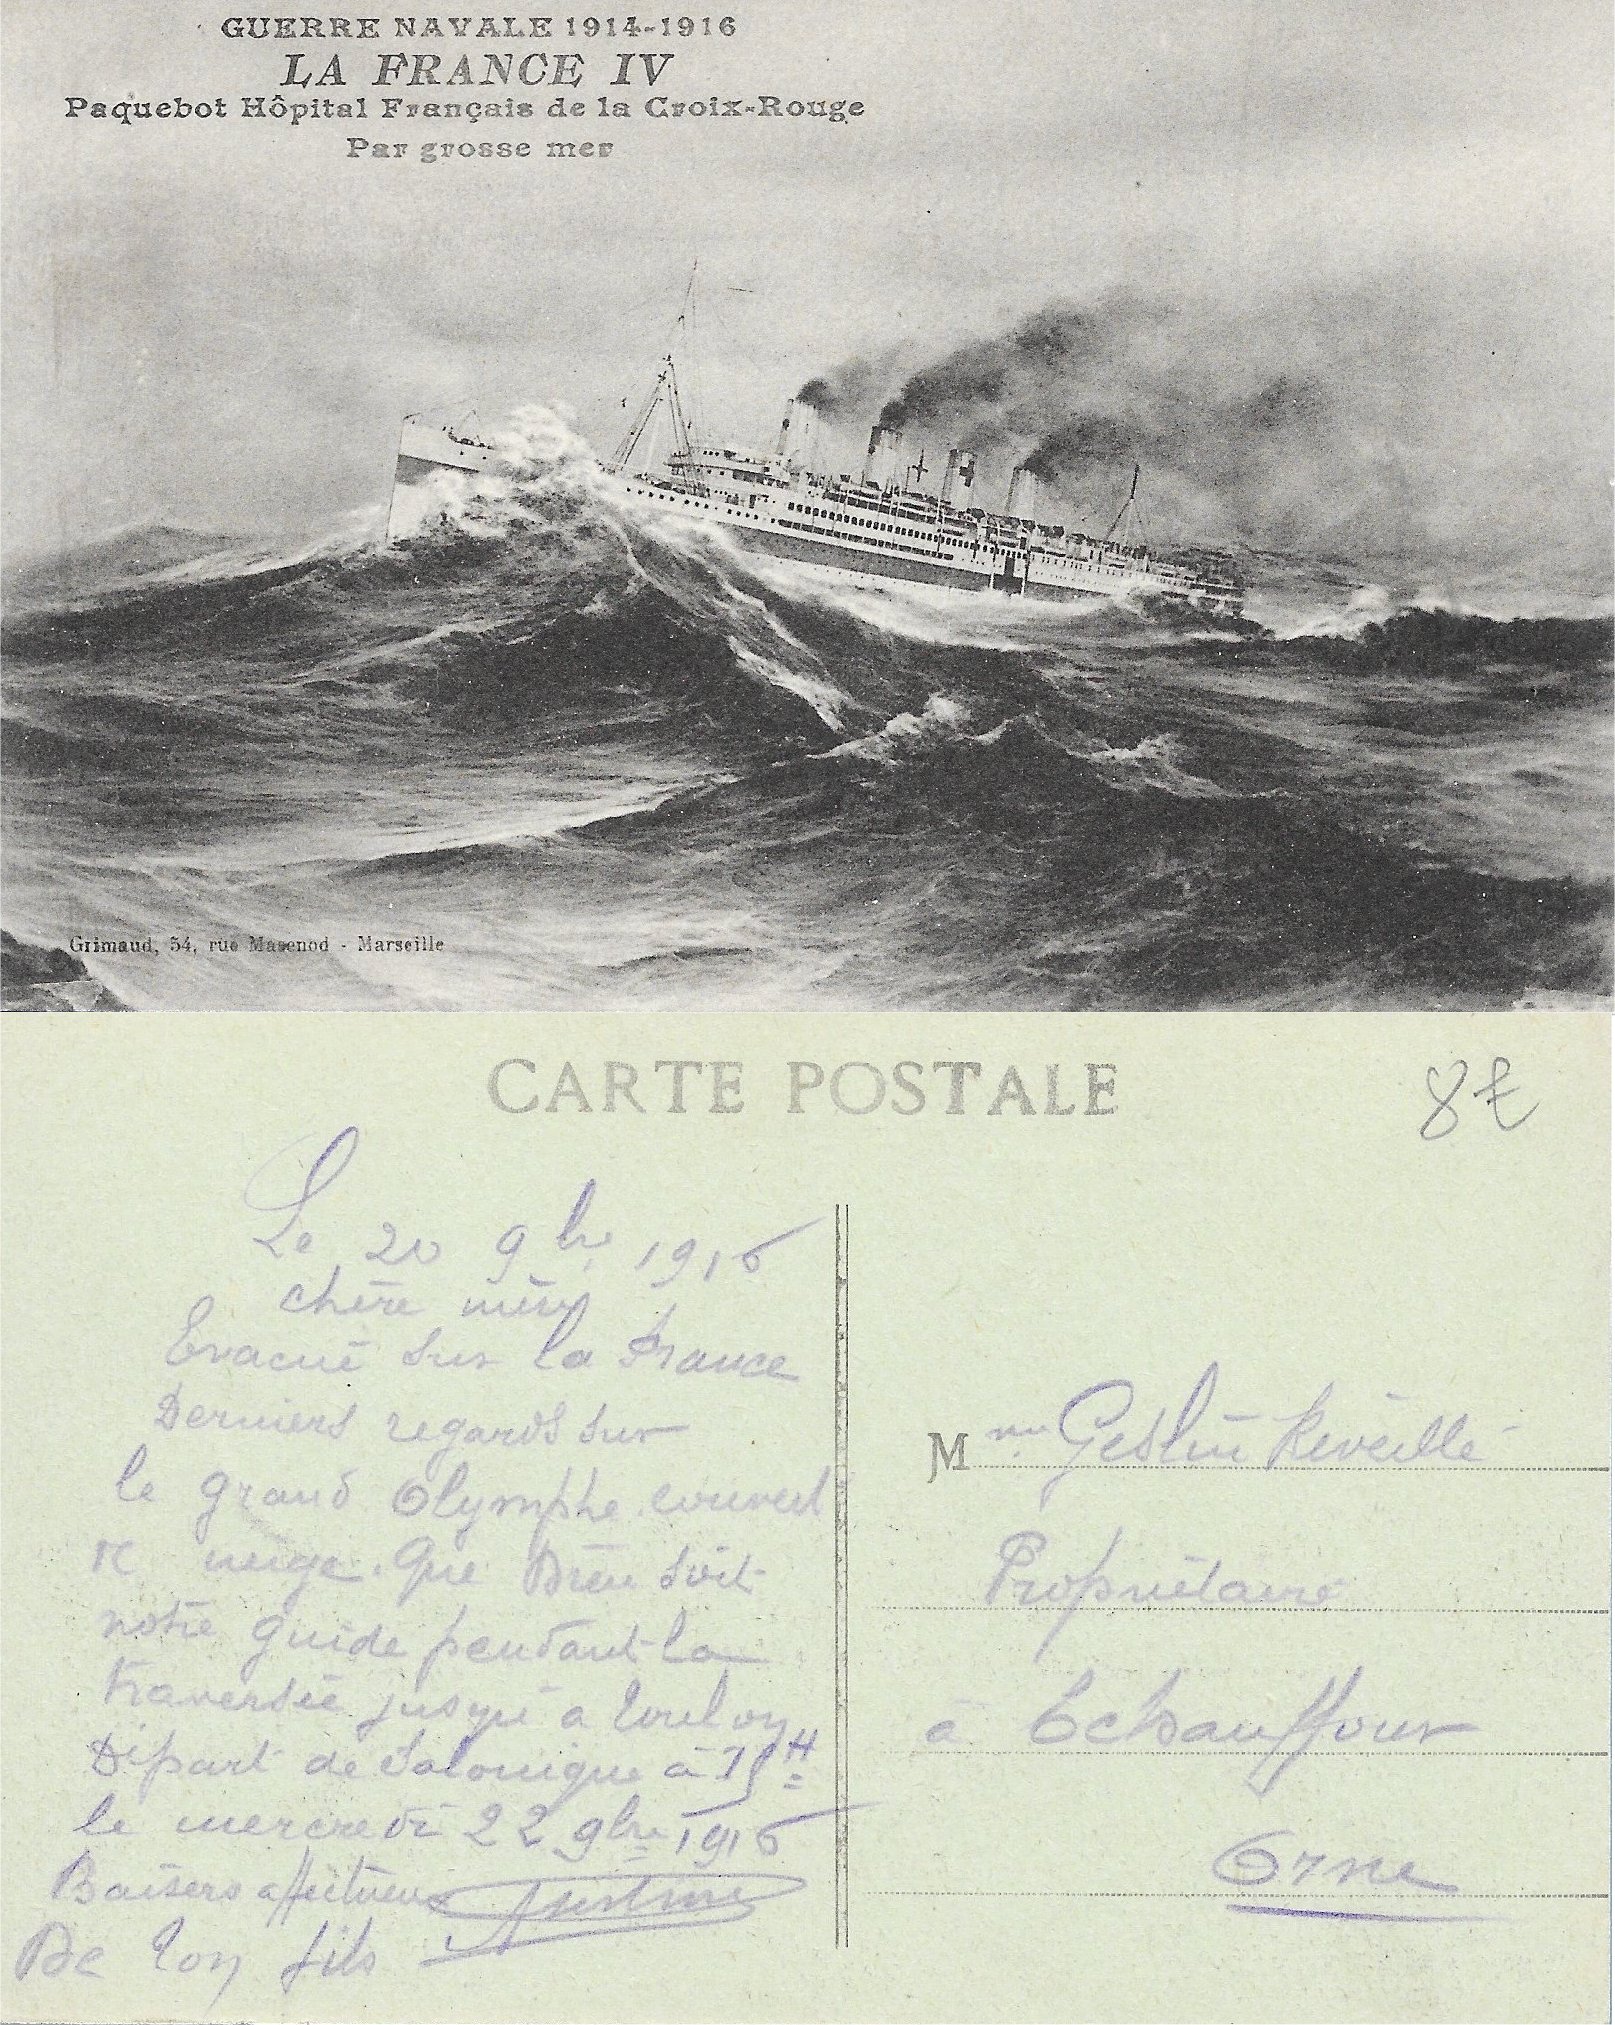 GUERRE NAVALE 1914-1916
LA FRANCE IV
Paquebot Hôpital Français de la Croix-Rouge
Par grosse mer
Grimaud, 54, rue Masenod - Marseille
CARTE POSTALE
8€
Le 20 9bre 1916
chère mère
Evacué sur la France
Derniers regards sur
le grand Olymphe couvert
de neige. Que Dieu soit
notre guide pendant la
traversée jusqu'à Toulon
Départ de Salonique à 15H
le mercredi 22 9bre 1916
Baisers affectueux
De ton fils
Mme Geslin Réveillé
Propriétaire
à Echauffour
Orne